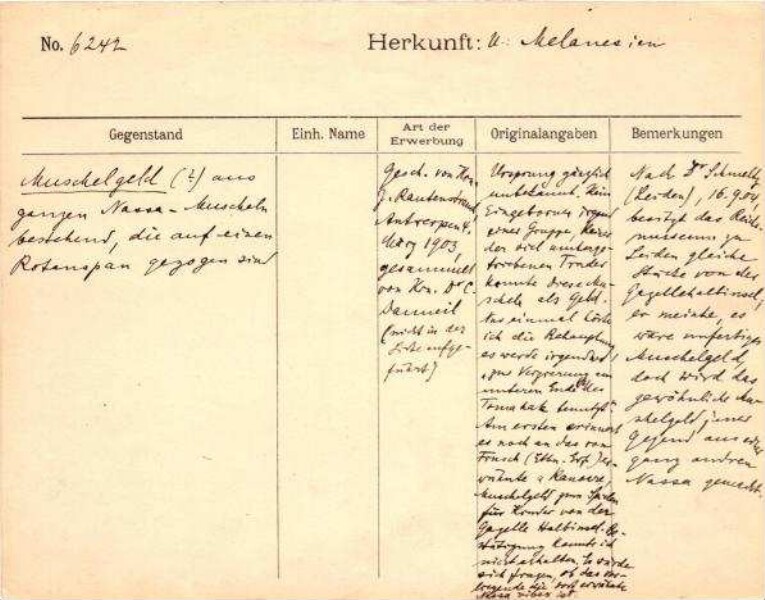 No. 6242
Herkunft: U: Melanesien
Gegenstand
Einh. Name
Art der
Erwerbung
Originalangaben
Bemerkungen
Muschelgeld (?) aus
ganzen Nassa-Muscheln
bestehend, die auf einen
Rotanspan gezogen sind
Gesch. von Hrn.
Rautenstrauch,
Antwerpen 4.
März 1903,
gesammelt
von Hrn. Dr C.
Danneil
(nicht in der
Liste aufge-
führt)
Ursprung gänzlich
unbekannt. Kein
Eingeborner irgend
einer Gruppe, keiner
der viel umherge-
triebenen Trader
kannte diese Mu-
scheln als Geld.
einmal hörte
ich die Behauptung
es werde irgendwo
"zur Verzierung am
unteren Ende des
Tomahak benutzt".
Am ersten erinnert
es noch an das von
Finsch (Ethn. Erf.) er-
wähnte
Muschelgeld zum Spielen
für Kinder von der
Gazelle Halbinsel. Be-
stätigung konnte ich
nicht erhalten. Es würde
sich fragen, ob das vor-
liegende die dort erwähnte
Nassa vibex ist.
Nach Dr Schmeltz
(Leiden), 16.9.04,
besitzt das Reichs-
museum zu
Leiden gleiche
Stücke von der
Gazellehalbinsel;
er meinte, es
wäre unfertiges
Muschelgeld,
doch wird das
gewöhnliche Mu-
schelgeld jener
Gegend aus einer
ganz andren
Nassa gemacht.